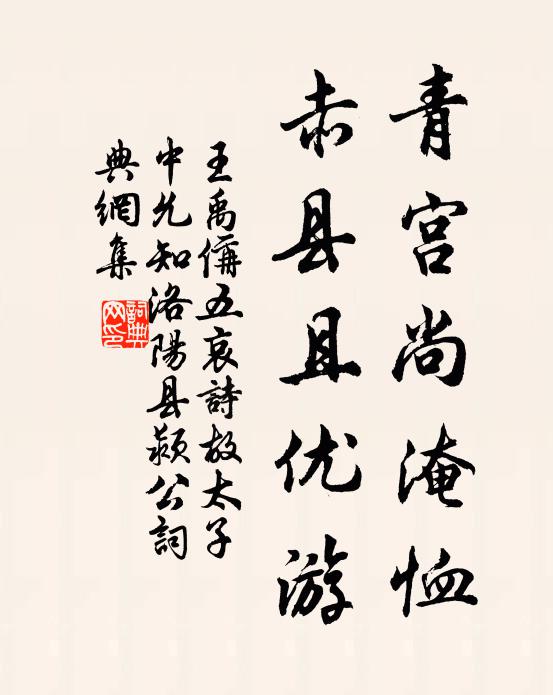 青宫尚淹恤
赤县且优游
王禹偁五哀詩故太子
中允知洛陽县颍公詞
典網集
詞典网印